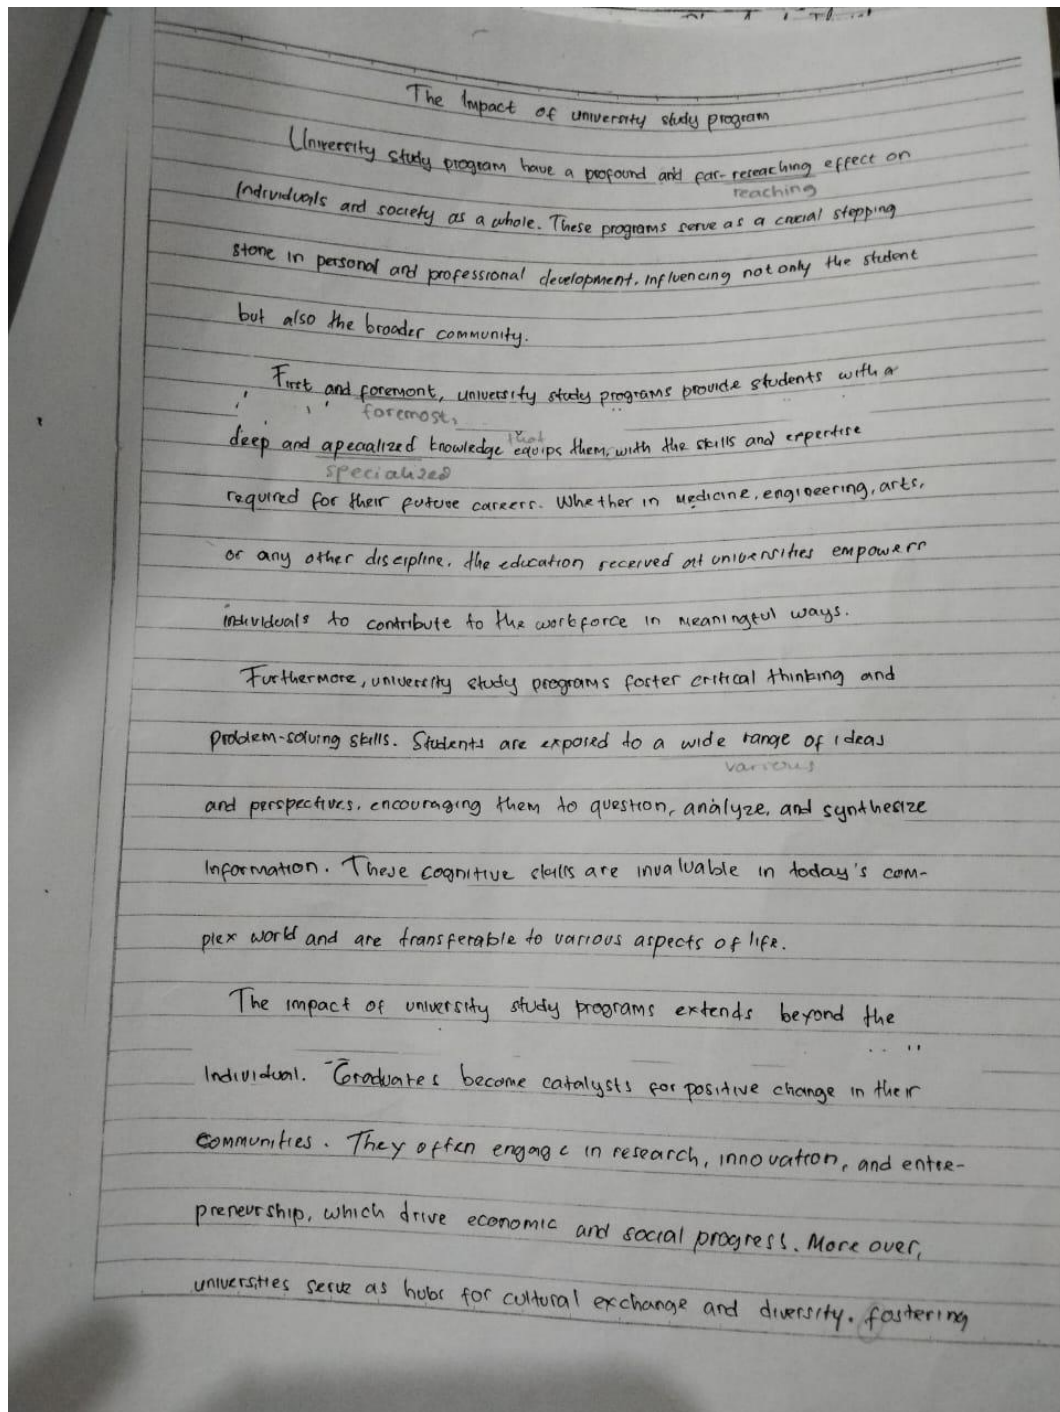 The Impact of university study program
University study program have a profound and far-reseaching effect on
reaching
Individuals and society as a whole. These programs serve as a crucial stepping
stone in personal and professional development. Influencing not only the student
but also the broader community.
First and foremont, university study programs provide students with a
foremost,
that
deep and apecialized knowledge equips them, with the skills and expertise
specialized
required for their future careers. Whether in Medicine, engineering, arts,
or any other discipline. the education received at universities empowers
individuals to contribute to the workforce in meaningful ways.
Furthermore, university study programs foster critical thinking and
problem-solving skills. Students are exposed to a wide range of ideas
various
and perspectives, encouraging them to question, analyze, and synthesize
Information. These cognitive skills are invaluable in today's com-
plex world and are transferable to various aspects of life.
The impact of university study programs extends beyond the
Individual. Graduates become catalysts for positive change in their
communities. They often engage in research, innovation, and entre-
preneurship, which drive economic and social progress. More over,
universities serve as hubs for cultural exchange and diversity. fostering